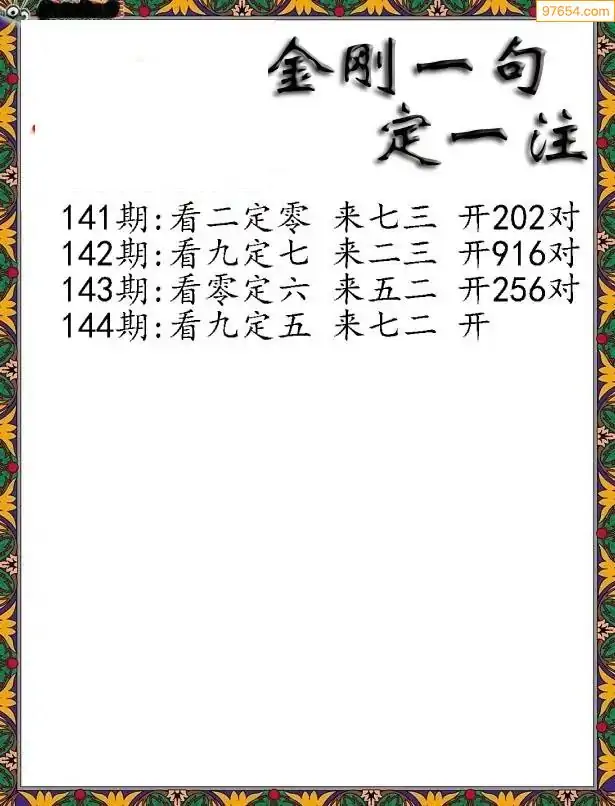 97654.com
金刚一句
定一注
141期:看二定零 来七三 开202对
142期:看九定七 来二三 开916对
143期:看零定六 来五二 开256对
144期:看九定五 来七二 开